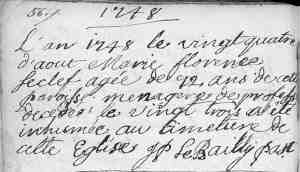 56. 1748
L'an 1748 le vingt quatre
d'aout Marie florence
seclet agée de 92 ans de cette
paroisse menagere de profess
decedée le vingt trois a été
inhumée au cimetiere de
cette Eglise